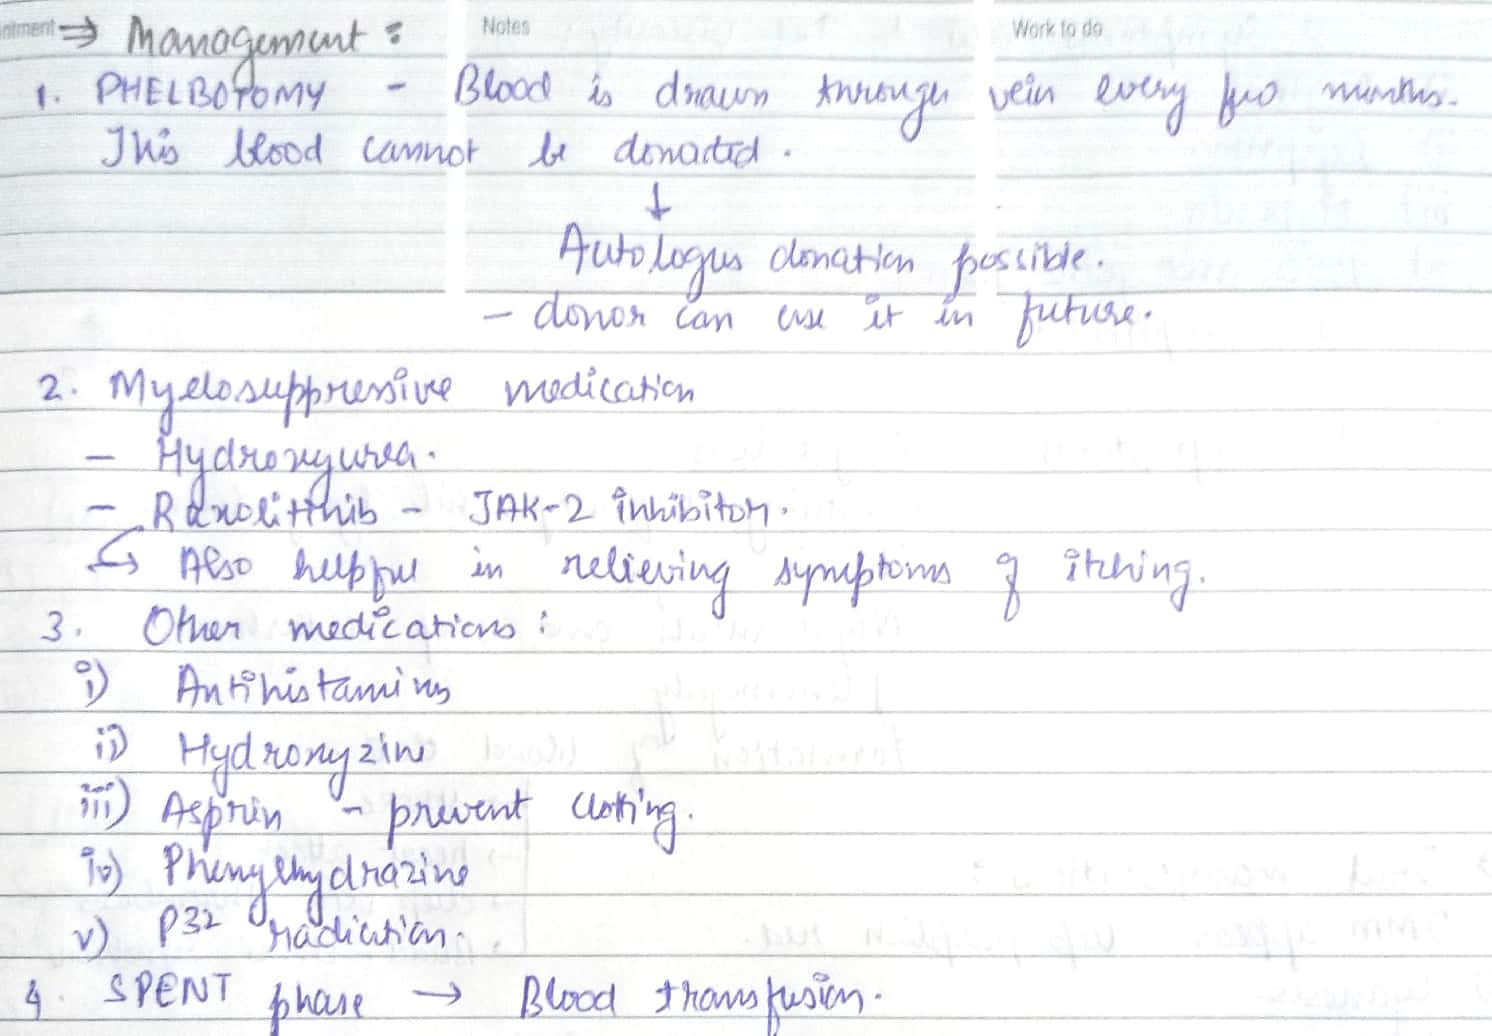 ntment Notes Work to do
⇒ Management :
1. PHELBOTOMY - Blood is drawn through vein every few months.
This blood cannot be donated.
↓
Autologus donation possible.
- donor can use it in future.
2. Myelosuppressive medication
- Hydroxyurea.
- Ruxolitinib - JAK-2 inhibitor.
↳ Also helpful in relieving symptoms of itching.
3. Other medications :
i) Antihistamines
ii) Hydroxyzine
iii) Asprin - prevent clotting.
iv) Phenylhydrazine
v) P32 radiation.
4. SPENT phase → Blood transfusion.